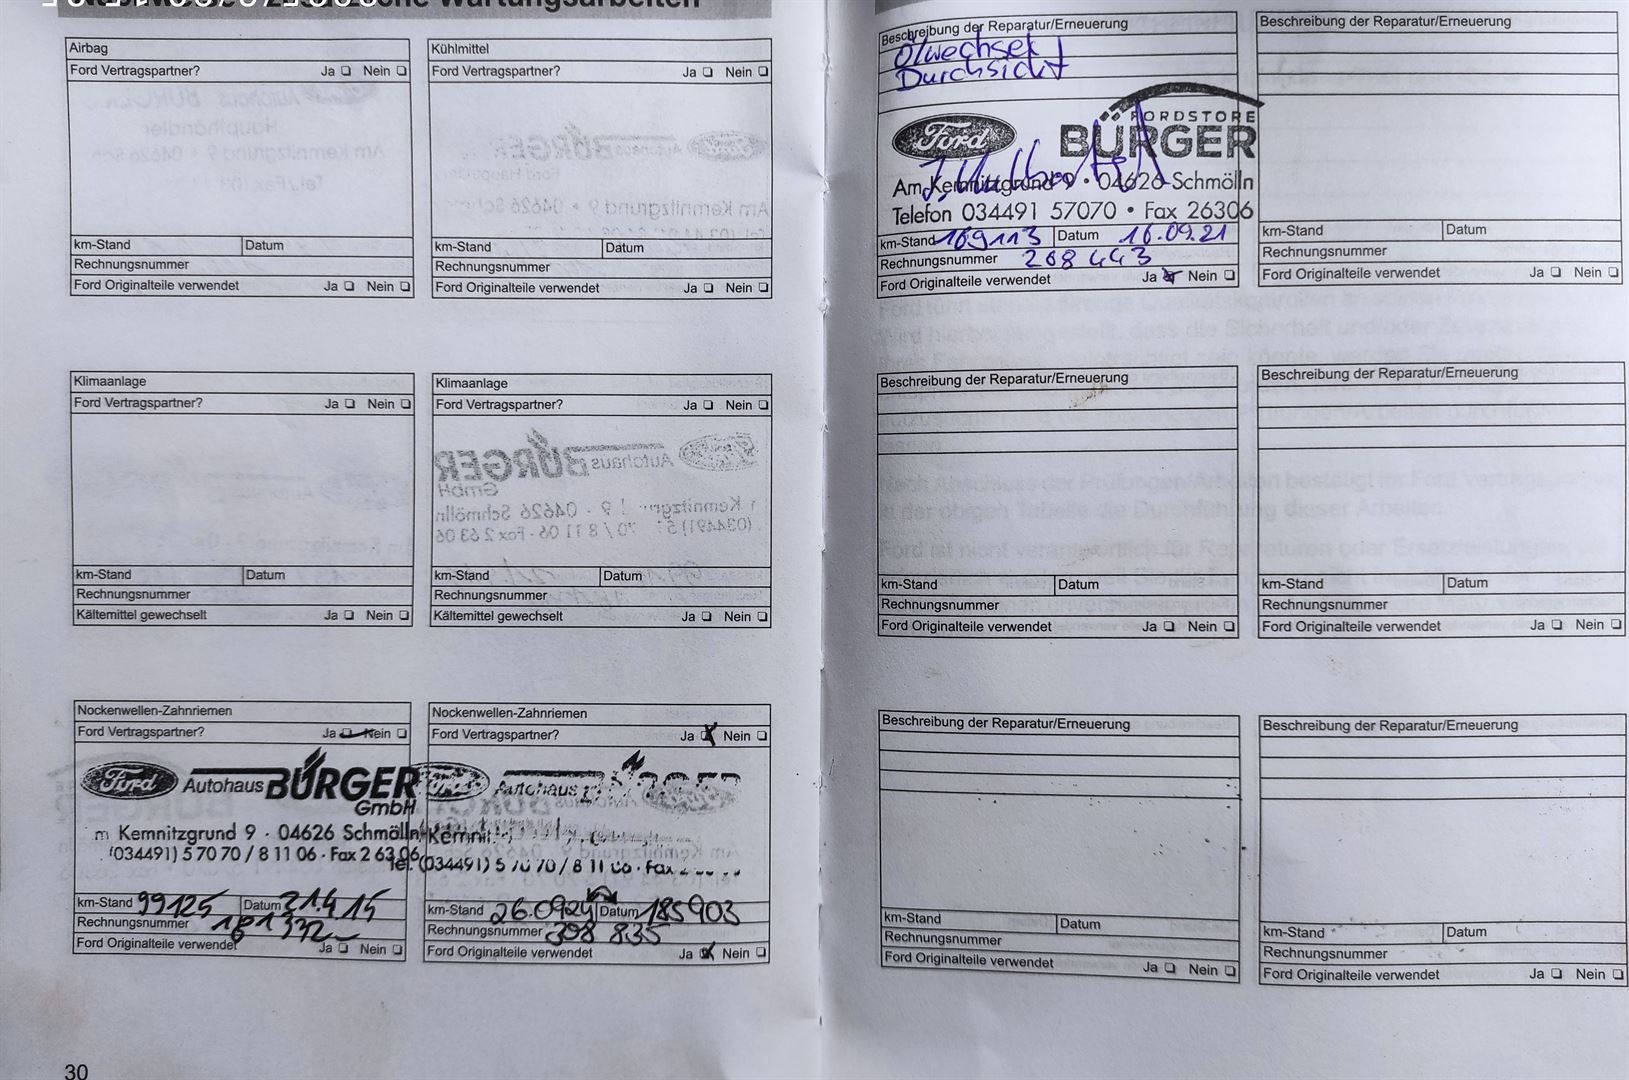 Wartungsarbeiten
Airbag
Ford Vertragspartner? Ja ❏ Nein ❏
km-Stand Datum
Rechnungsnummer
Ford Originalteile verwendet Ja ❏ Nein ❏
Kühlmittel
Ford Vertragspartner? Ja ❏ Nein ❏
km-Stand Datum
Rechnungsnummer
Ford Originalteile verwendet Ja ❏ Nein ❏
Klimaanlage
Ford Vertragspartner? Ja ❏ Nein ❏
km-Stand Datum
Rechnungsnummer
Kältemittel gewechselt Ja ❏ Nein ❏
Klimaanlage
Ford Vertragspartner? Ja ❏ Nein ❏
km-Stand Datum
Rechnungsnummer
Kältemittel gewechselt Ja ❏ Nein ❏
Nockenwellen-Zahnriemen
Ford Vertragspartner? Ja ❏ Nein ❏
Ford Autohaus BÜRGER
GmbH
m Kemnitzgrund 9 · 04626 Schmölln
(034491) 5 70 70 / 8 11 06 · Fax 2 63 06
km-Stand 99125 Datum 21.4.15
Rechnungsnummer 181332
Ford Originalteile verwendet Ja ❏ Nein ❏
Nockenwellen-Zahnriemen
Ford Vertragspartner? Ja ❏ Nein ❏
Autohaus
Tel. (034491) 5 70 70 / 8 11 06 · Fax
km-Stand 26.0924 Datum 185903
Rechnungsnummer 398 835
Ford Originalteile verwendet Ja ❏ Nein ❏
30
Beschreibung der Reparatur/Erneuerung
Ölwechsel
Durchsicht
FORDSTORE
Ford BÜRGER
Am Kemnitzgrund 9 · 04626 Schmölln
Telefon 034491 57070 • Fax 26306
km-Stand 169113 Datum 16.09.21
Rechnungsnummer 268 443
Ford Originalteile verwendet Ja ❏ Nein ❏
Beschreibung der Reparatur/Erneuerung
km-Stand Datum
Rechnungsnummer
Ford Originalteile verwendet Ja ❏ Nein ❏
Beschreibung der Reparatur/Erneuerung
km-Stand Datum
Rechnungsnummer
Ford Originalteile verwendet Ja ❏ Nein ❏
Beschreibung der Reparatur/Erneuerung
km-Stand Datum
Rechnungsnummer
Ford Originalteile verwendet Ja ❏ Nein ❏
Beschreibung der Reparatur/Erneuerung
km-Stand Datum
Rechnungsnummer
Ford Originalteile verwendet Ja ❏ Nein ❏
Beschreibung der Reparatur/Erneuerung
km-Stand Datum
Rechnungsnummer
Ford Originalteile verwendet Ja ❏ Nein ❏